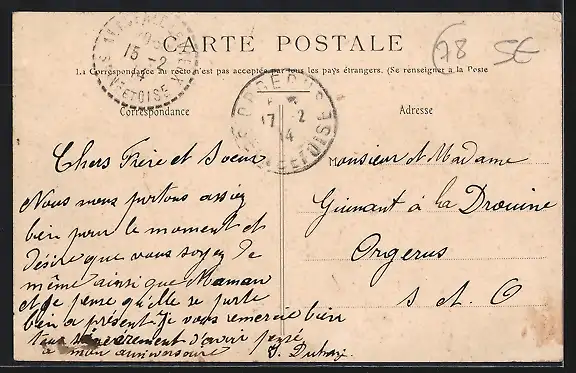 CARTE POSTALE
La Correspondance au recto n'est pas acceptée par tous les pays étrangers. (Se renseigner à la Poste
78 SE
15 -2
14
SEINE ET OISE
ORGERUS
17 -2
14
SEINE ET OISE
Correspondance
Chers Frère et Soeur
Nous nous portons assez
bien pour le moment et
désire que vous soyez de
même ainsi que Maman
et je pense qu'elle se porte
bien a présent. Je vous remercie bien
tous sincerement d'avoir pensé
a mon anniversaire
Adresse
Monsieur et Madame
à la Drouine
Orgerus
S et O